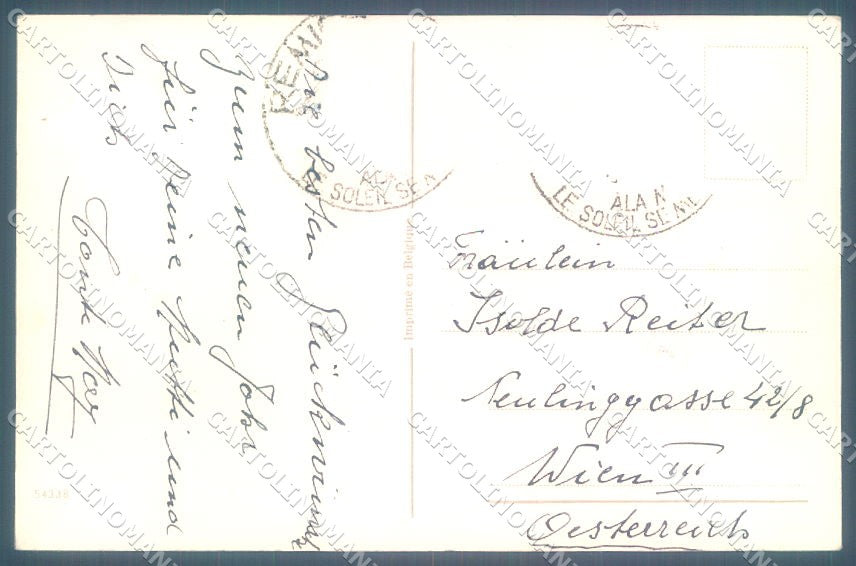 Die besten Glückwünsche
zum neuen Jahr
für Deine Mutti und
Dich
Tante
Imprimé en Belgique
54338
ALA N
LE SOLEIL SE N
Fräulein
Isolde Reiter
Neulinggasse 42/8
Wien III
Oesterreich
CARTOLINOMANIA